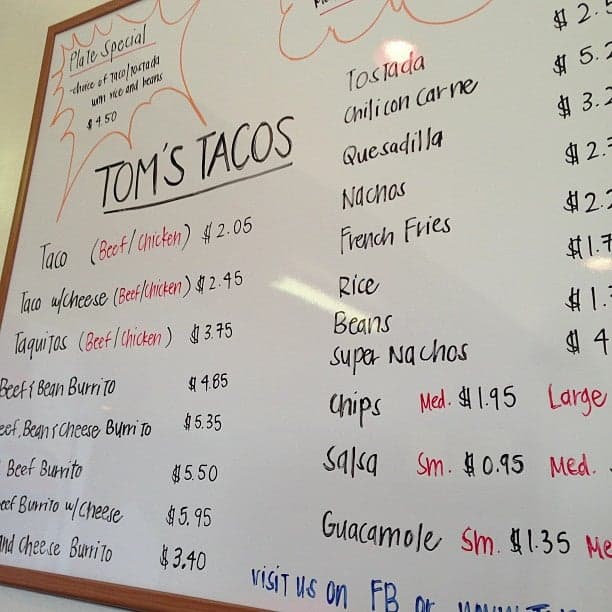 Plate Special
-choice of Taco/Tostada
with rice and beans
$4.50
TOM'S TACOS
Taco (Beef/Chicken) $2.05
Taco w/Cheese (Beef/Chicken) $2.45
Taquitos (Beef/Chicken) $3.75
Beef & Bean Burrito $4.85
eef, Bean & Cheese Burrito $5.35
Beef Burrito $5.50
eef Burrito w/Cheese $5.95
and Cheese Burrito $3.40
Tostada $2.5
Chili con Carne $5.2
Quesadilla $3.2
Nachos $2.
French Fries $2.2
Rice $1.7
Beans $1.
Super Nachos $4
Chips Med. $1.95 Large
Salsa Sm. $0.95 Med.
Guacamole Sm. $1.35 Me
Visit us on FB or